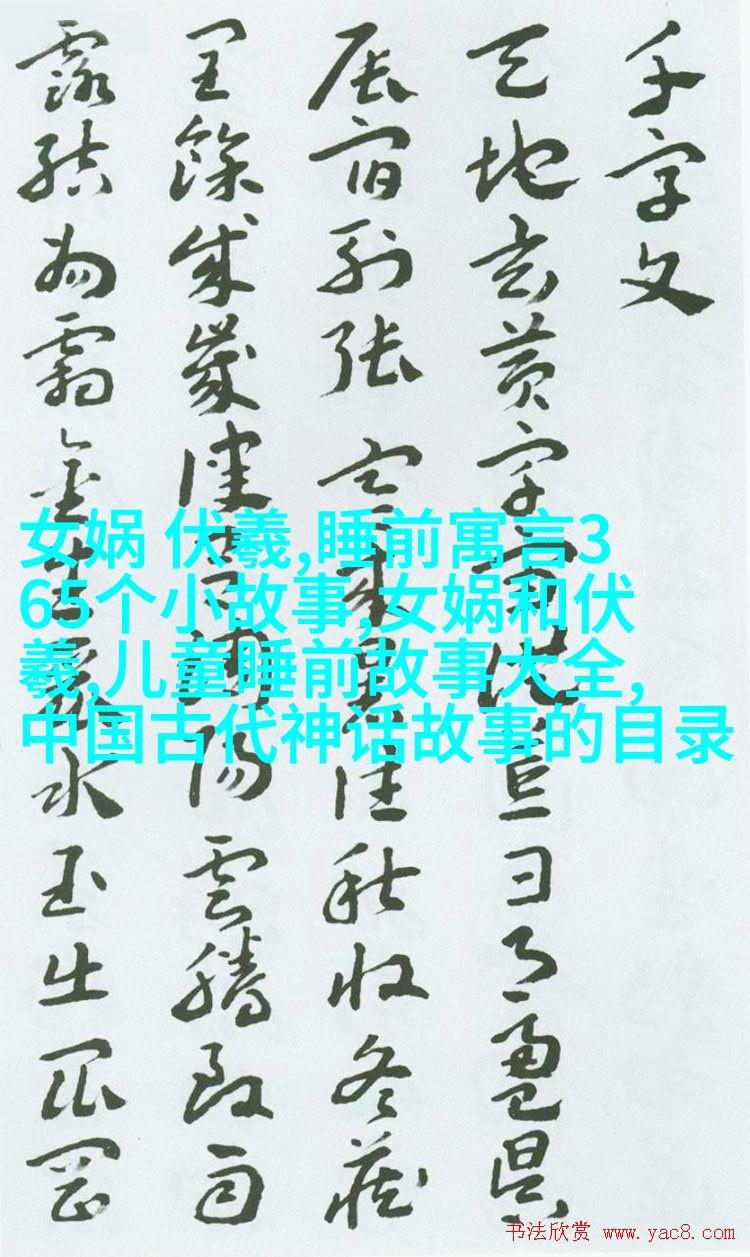 千字文
天地玄黄宇宙洪荒日月盈昃
辰宿列張寒來暑往秋收冬藏
閏餘成歲律吕調陽雲騰致雨
露結為霜金生麗水玉出崑岡
女娲 伏羲,睡前寓言3
65个小故事,女娲和伏
羲,儿童睡前故事大全,
中国古代神话故事的目录
书法欣赏 www.yac8.com